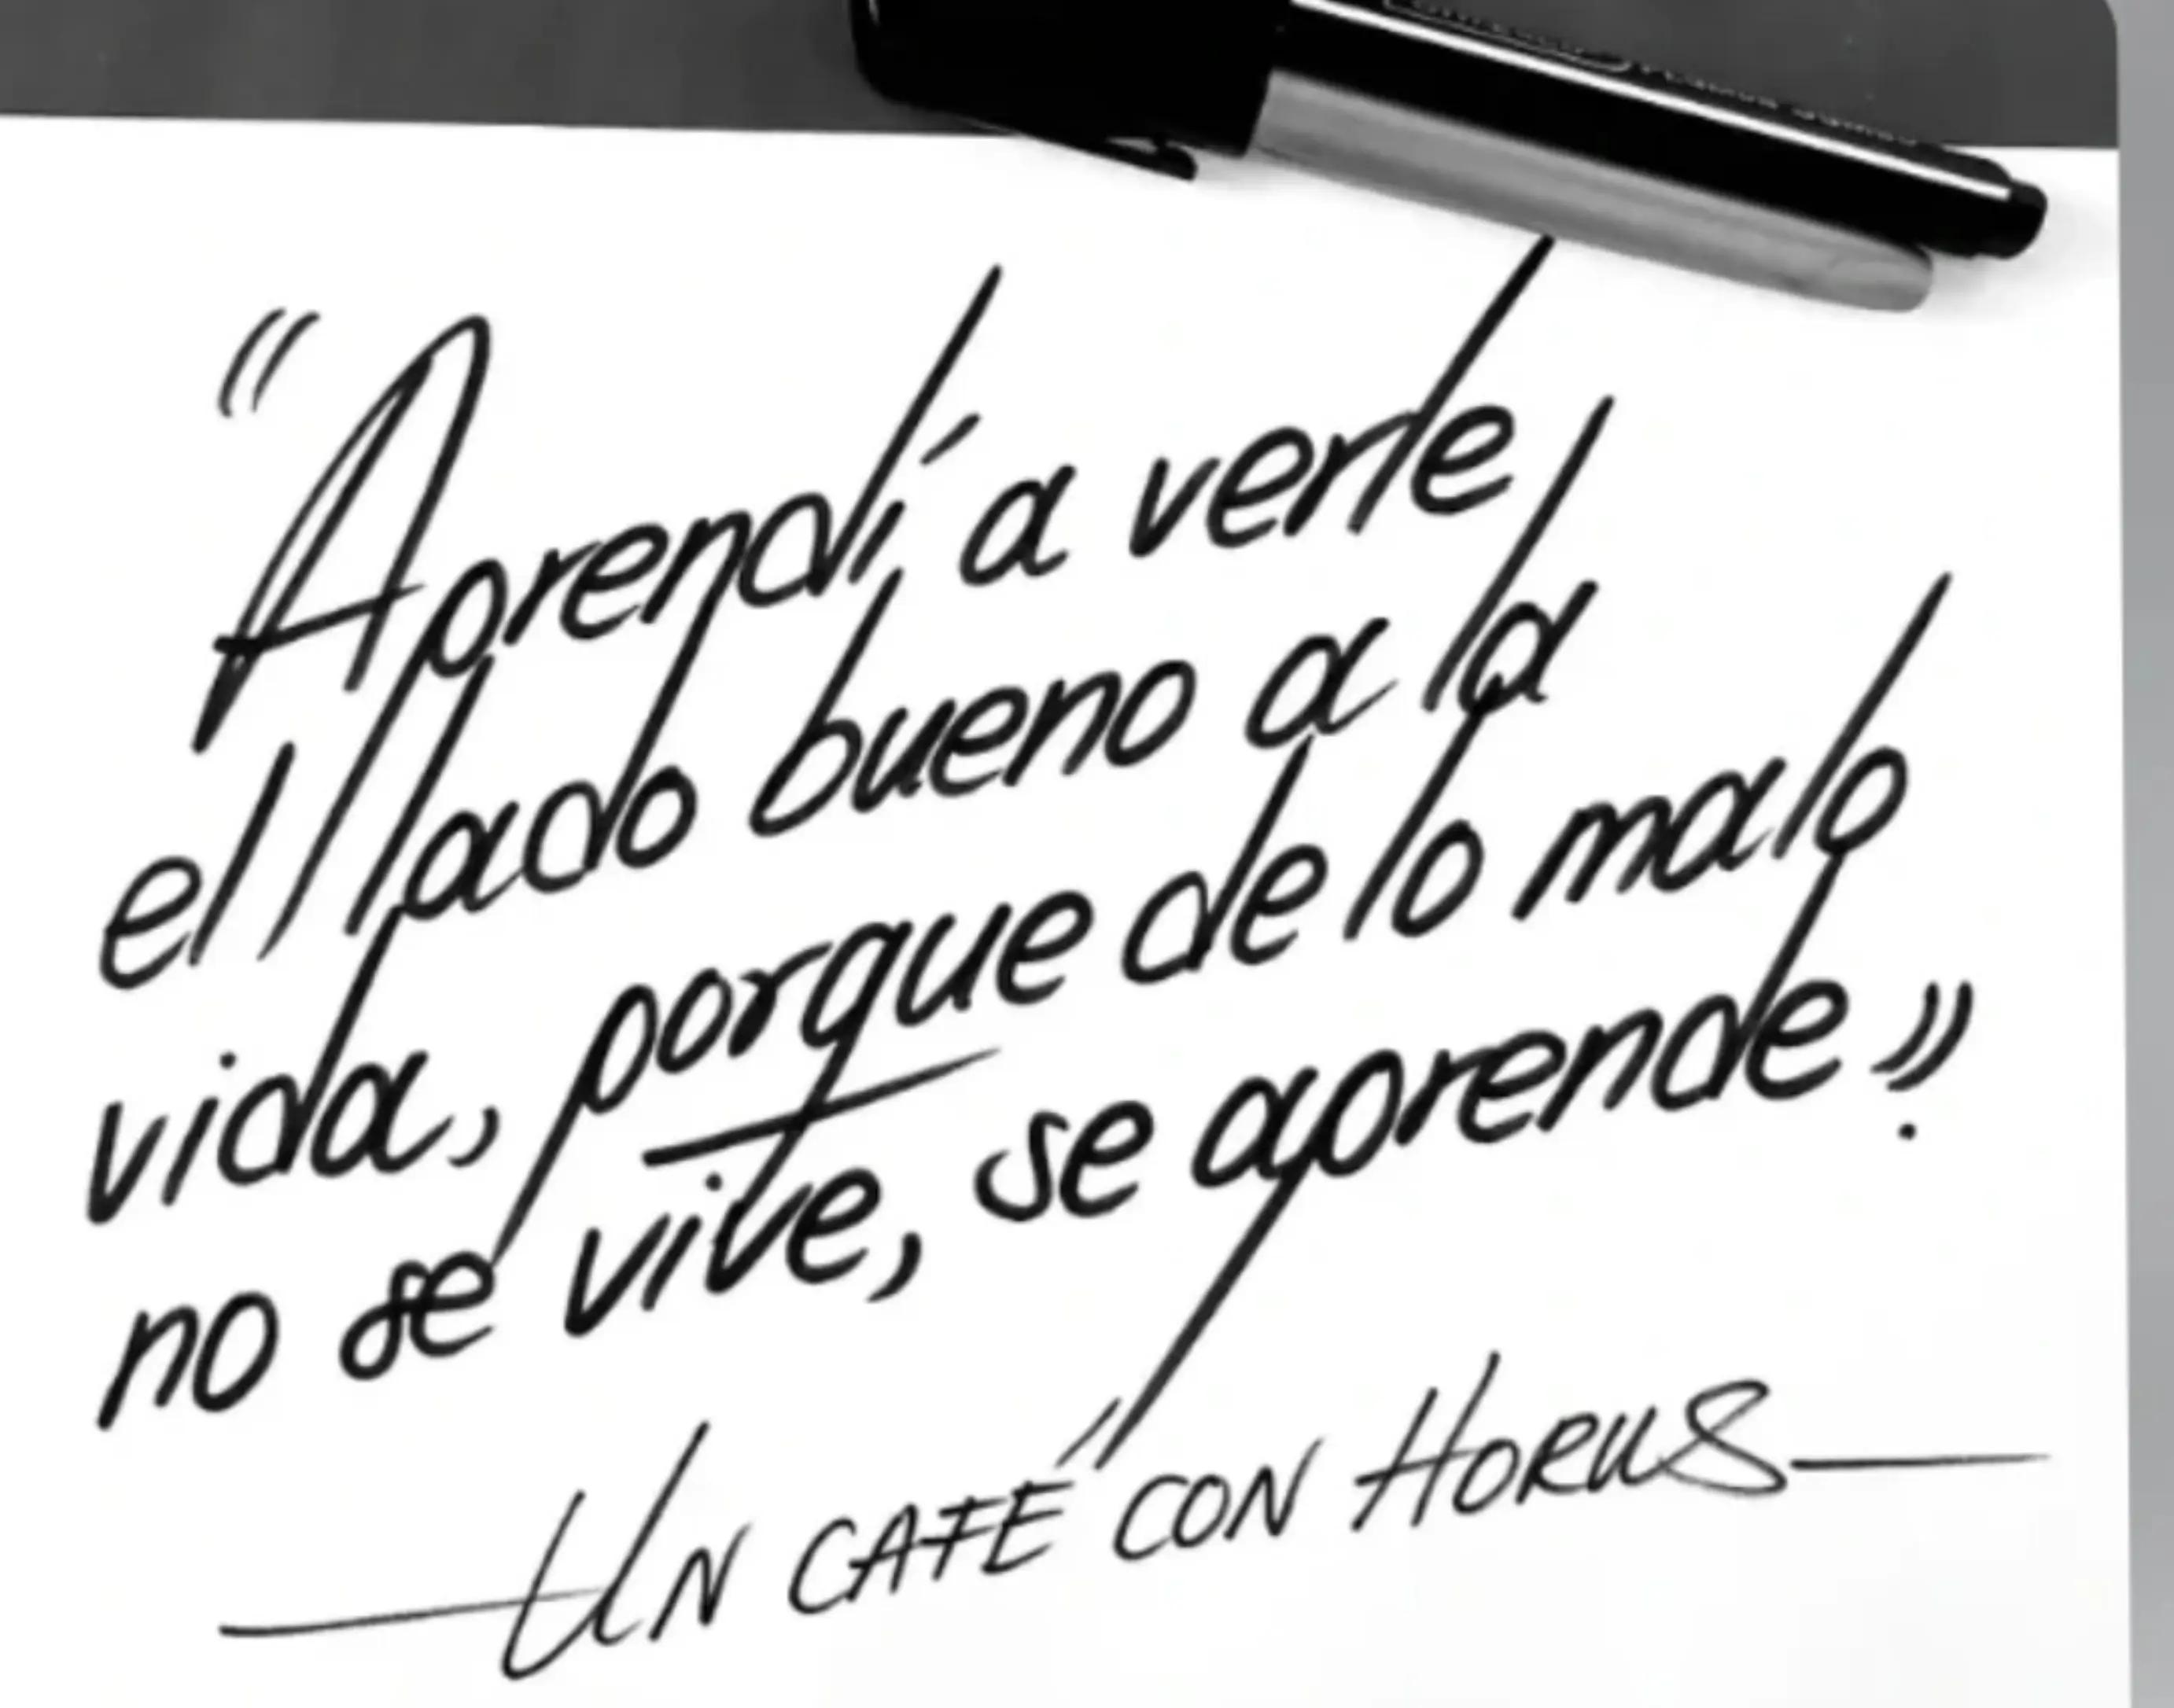 “Aprendí a verle
el lado bueno a la
vida, porque de lo malo
no se vive, se aprende”.
Un CAFÉ CON HORUS